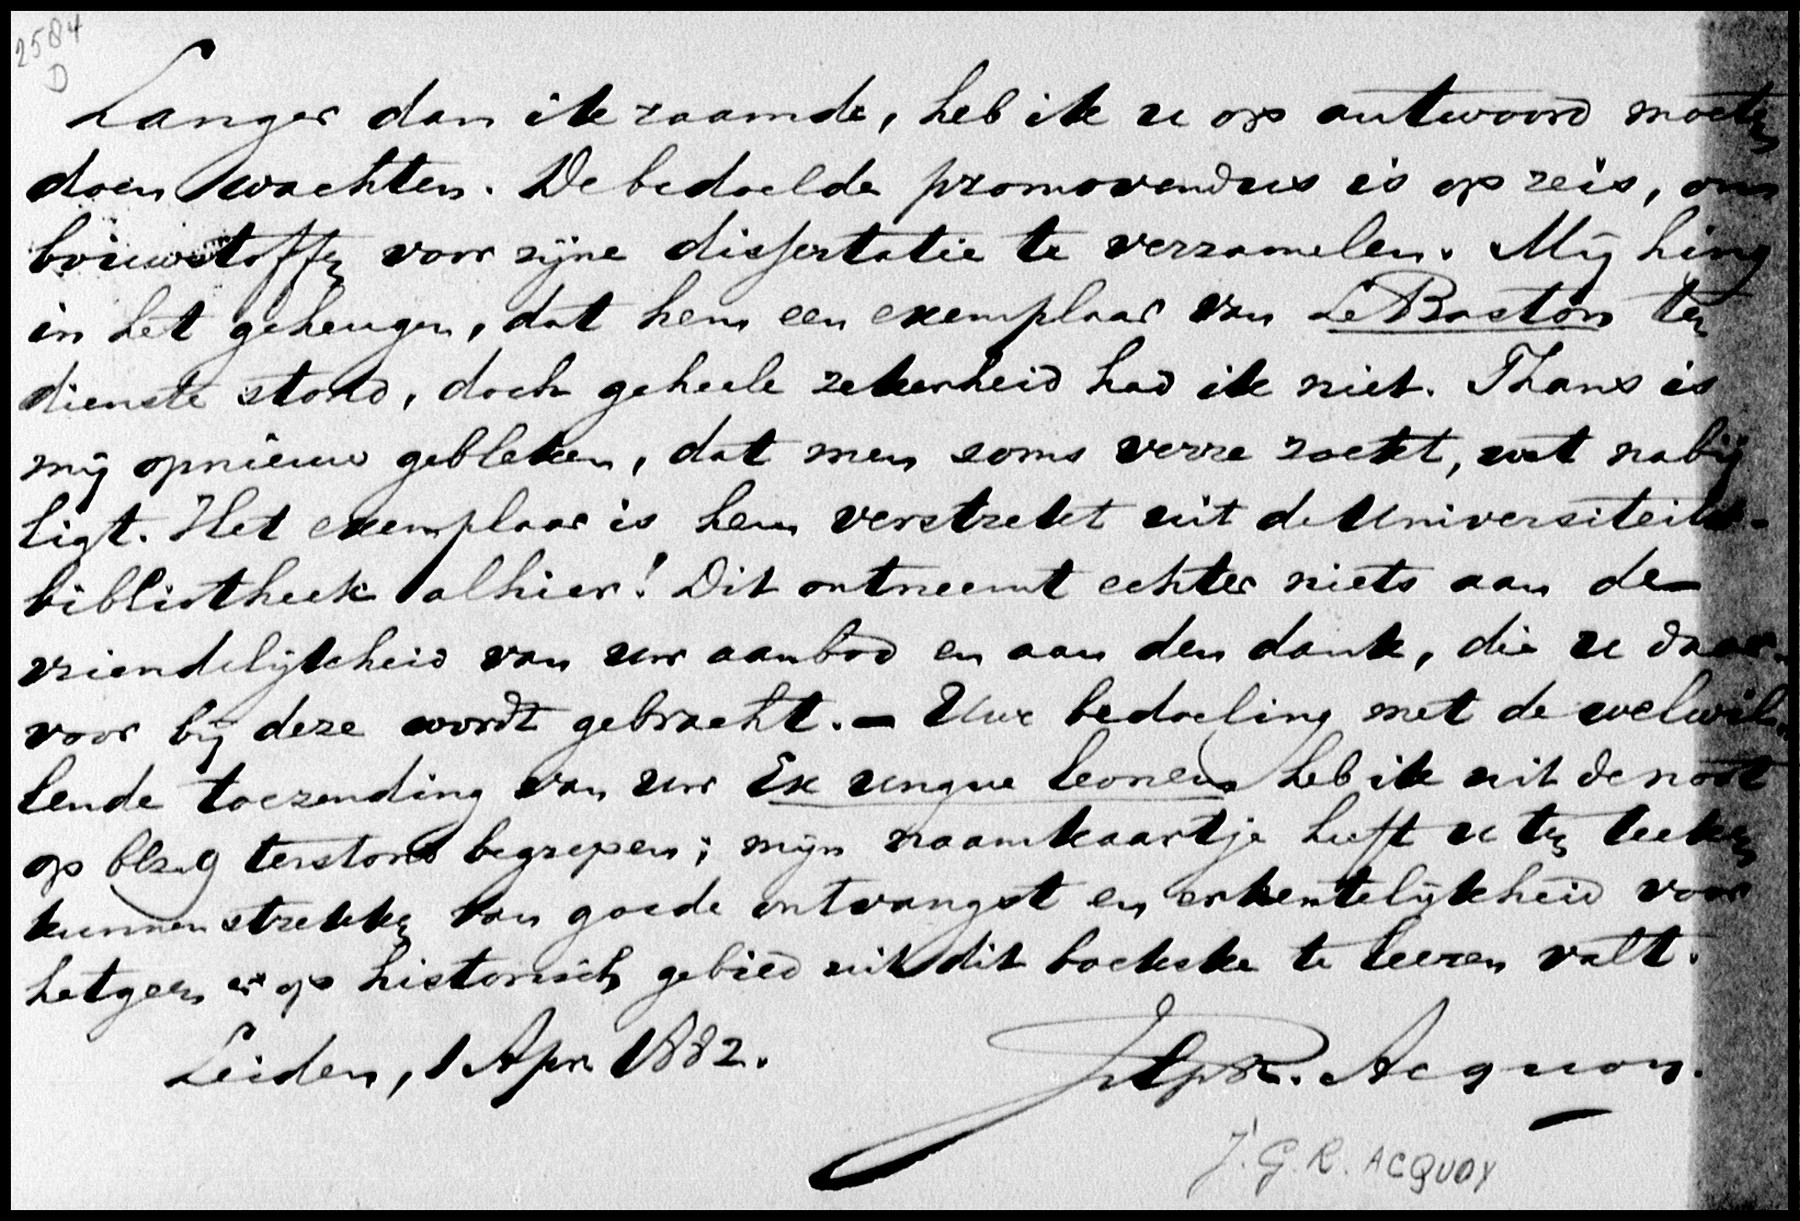 2584
D
Langer dan ik raamde, heb ik u op antwoord moeten
doen wachten. De bedoelde promovendus is op reis, om
bouwstoffen voor zijne dissertatie te verzamelen. Mij hing
in het geheugen, dat hem een exemplaar van Le Baston ten
dienste stond, doch geheele zekerheid had ik niet. Thans is
mij opnieuw gebleken, dat men soms verre zoekt, wat nabij
ligt. Het exemplaar is hem verstrekt uit de Universiteits-
bibliotheek alhier! Dit ontneemt echter niets aan de
vriendelijkheid van uw aanbod en aan den dank, die u daar-
voor bij deze wordt gebracht. – Uwe bedoeling met de welwil-
lende toezending van uw Ex ungue leonem heb ik uit de noot
op blz. 9 terstond begrepen; mijn naamkaartje heeft u ten teeken
kunnen strekken van goede ontvangst en erkentelijkheid voor
hetgeen er op historisch gebied uit dit boekske te leeren valt.
Leiden, 1 Apr. 1882.
Acquoy.
J. G. R. ACQUOY